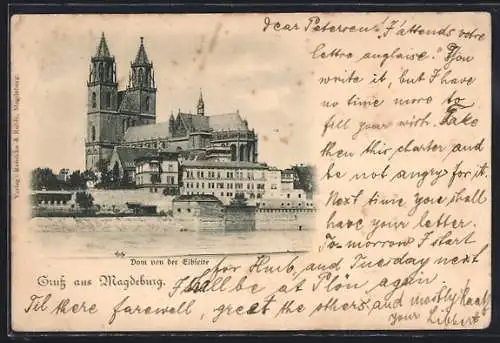 Dear Petersen! J'attends votre
lettre anglaise." You
write it, but I have
no time more to
fill your wish. Take
then this, charter and
be not angry for it.
Next time you shall
have your letter.
To-morrow I start
for Hub, and Tuesday next
I shall be at Plön again.
Til there farewell, great the others and mostly
your
Dom von der Elbseite
Gruß aus Magdeburg.
Verlag: Magdeburg.